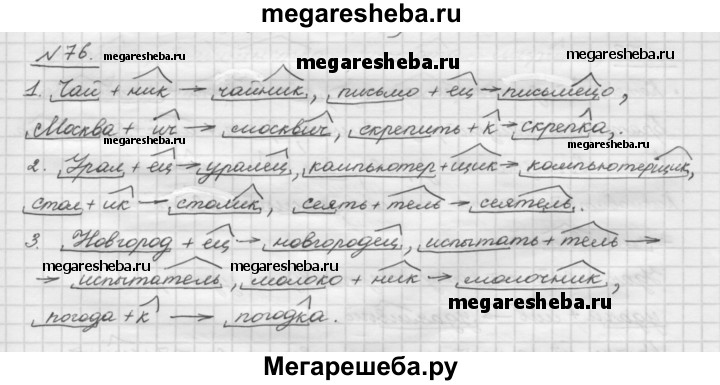 megaresheba.ru
№76. megaresheba.ru megaresheba.ru megaresheba.ru
1. Чай + ник → чайник, письмо + ец → письмецо,
Москва + ич → москвич, скрепить + к → скрепка.
megaresheba.ru
2. Урал + ец → уралец, компьютер + щик → компьютерщик,
стол + ик → столик, сеять + тель → сеятель.
3. Новгород + ец → новгородец, испытать + тель →
megaresheba.ru megaresheba.ru
→ испытатель, молоко + ник → молочник,
megaresheba.ru
погода + к → погодка.
Мегарешеба.ру